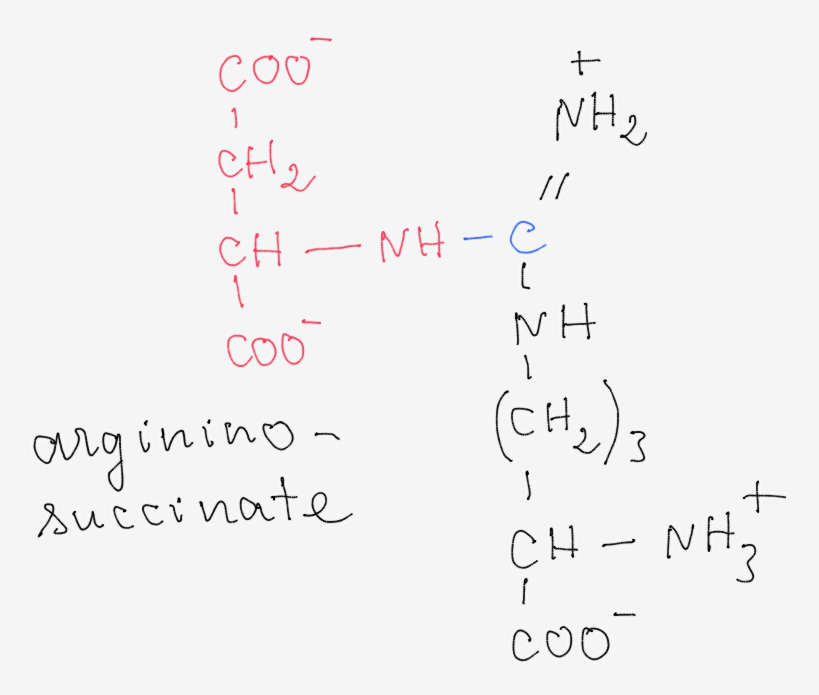 COO⁻
CH₂
CH — NH — C
COO⁻
+
NH₂
//
NH
(CH₂)₃
CH — NH₃⁺
COO⁻
arginino-
succinate